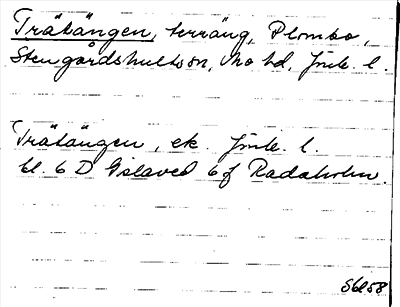 Trätängen, terräng, Plombo,
Stengårdshults sn, Mo hd, Jönk. l.
Trätängen, ek. Jönk. l.
bl. 6 D Gislaved 6f Radaholm.